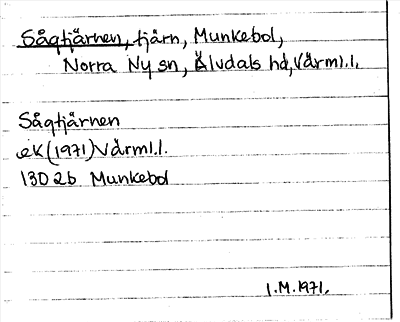 Sågtjärnen, tjärn, Munkebol,
Norra Ny sn, Älvdals hd, Värml.l.
Sågtjärnen
ek (1971) Värml.l.
13D 2b Munkebol
I.M. 1971.